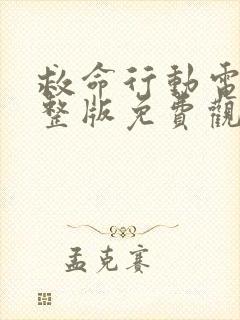 救命行動電
整版免費觀
孟克賽